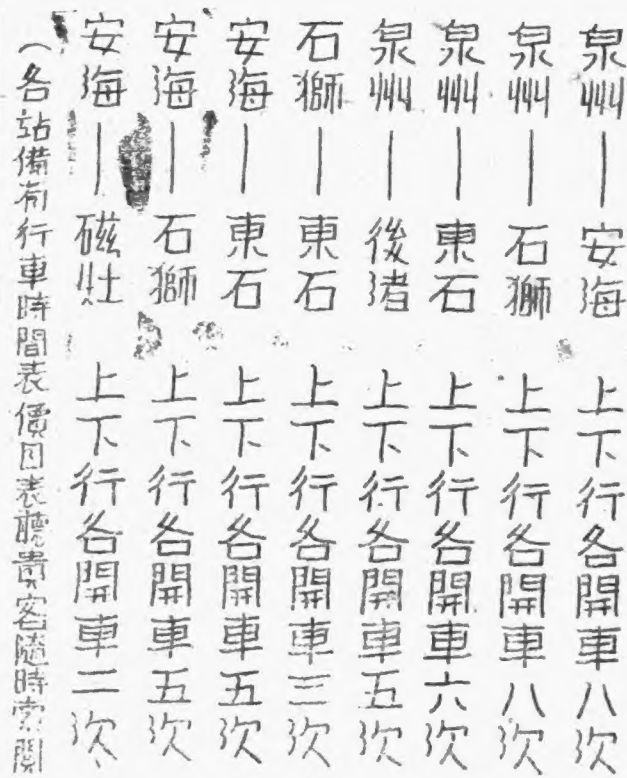 泉州—安海 上下行各開車八次
泉州—石獅 上下行各開車八次
泉州—東石 上下行各開車六次
泉州—後渚 上下行各開車五次
石獅—東石 上下行各開車三次
安海—東石 上下行各開車五次
安海—石獅 上下行各開車五次
安海—磁灶 上下行各開車二次
（各站備有行車時間表價目表聽貴客隨時索閱